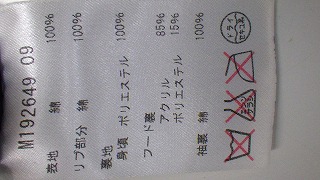 M192649 09
表地 綿 100%
リブ部分 綿 100%
裏地
身頃 ポリエステル 100%
フード裏
アクリル 85%
ポリエステル 15%
袖裏 綿 100%
エンソ
サラシ
ドライ
セキユ系